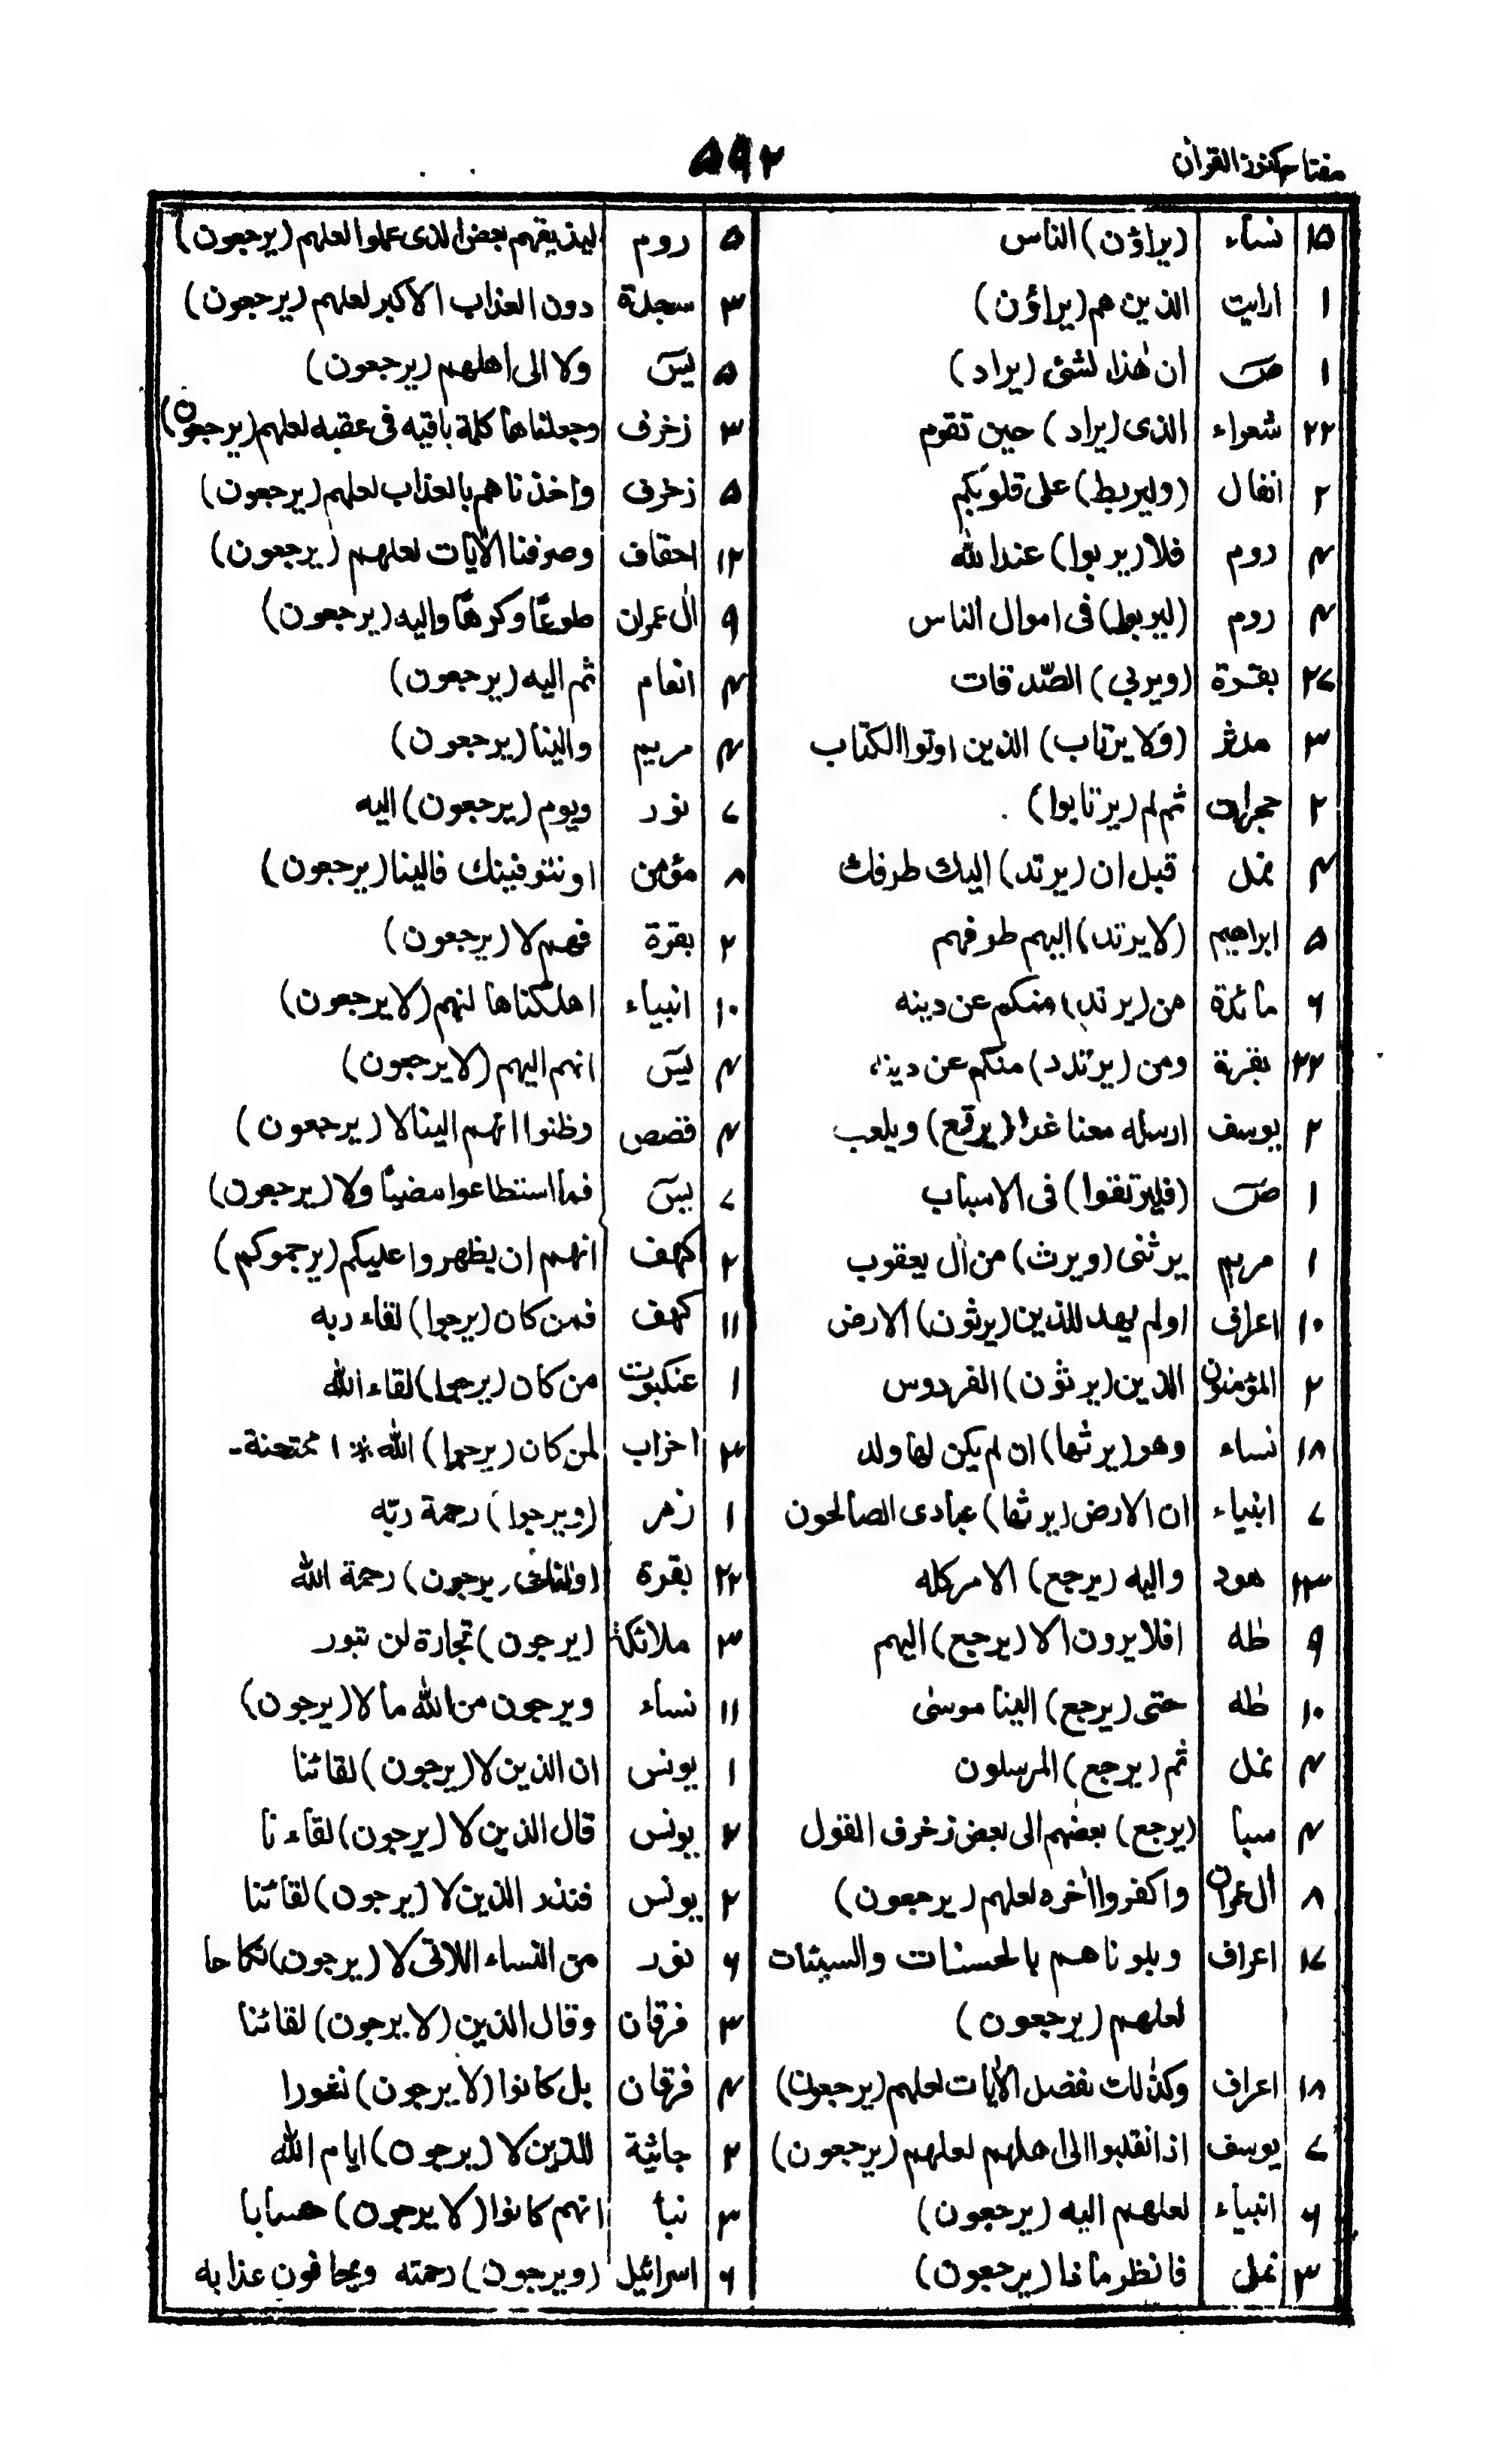 مفتاح كنوز القرآن
۵۹۲
۱۵ نساء (يراؤن) الناس
۱ ارايت الذين هم (يراؤن)
۱ صٓ ان هٰذا لشئ (يراد)
۲۲ شعراء الذى (يراد) حين تقوم
۲ انفال (وليربط) على قلوبكم
۴ روم فلا (يربوا) عند الله
۴ روم (ليربوا) فى اموال الناس
۲۷ بقرة (ويربي) الصّدقات
۳ مدثر (ولا يرتاب) الذين اوتوا الكتاب
۲ حجرات ثم لم (يرتابوا)
۴ نمل قبل ان (يرتد) اليك طرفك
۵ ابراهيم (لا يرتد) اليهم طرفهم
۶ مائدة من (يرتد) منكم عن دينه
۲۲ بقرة ومن (يرتدد) منكم عن دينه
۲ يوسف ارسله معنا غدا (يرتع) ويلعب
۱ صٓ (فليرتقوا) فى الاسباب
۱ مريم يرثنى (ويرث) من اٰل يعقوب
۱۰ اعراف اولم يهد للذين (يرثون) الارض
۲ المؤمنون الذين (يرثون) الفردوس
۱۸ نساء وهو (يرثها) ان لم يكن لها ولد
۷ ابنياء ان الارض (يرثها) عبادى الصالحون
۱۲۳ هود واليه (يرجع) الامر كله
۹ طٰه افلا يرون الا (يرجع) اليهم
۱۰ طٰه حتى (يرجع) الينا موسىٰ
۴ نمل ثم (يرجع) المرسلون
۴ سبا (يرجع) بعضهم الى بعض زخرف القول
۸ اٰل عمران واكفروا اٰخره لعلهم (يرجعون)
۱۷ اعراف وبلوناهم بالحسنات والسيئات
لعلهم (يرجعون)
۱۸ اعراف وكذٰلك نفصل الاٰيات لعلهم (يرجعون)
۷ يوسف اذا نقلبوا الى اهلهم لعلهم (يرجعون)
۶ انبياء لعلهم اليه (يرجعون)
۳ نمل فانظر ماذا (يرجعون)
۵ روم ليذيقهم بعض الذى عملوا لعلهم (يرجعون)
۳ سجدة دون العذاب الاكبر لعلهم (يرجعون)
۵ يسٓ ولا الى اهلهم (يرجعون)
۳ زخرف وجعلناها كلمة باقيه فى عقبه لعلهم (يرجعون)
۵ زخرف واخذناهم بالعذاب لعلهم (يرجعون)
۱۲ احقاف وصرفنا الاٰيات لعلهم (يرجعون)
۹ اٰل عمران طوعًا وكرهًا واليه (يرجعون)
۴ انعام ثم اليه (يرجعون)
۴ مريم والينا (يرجعون)
۷ نور ويوم (يرجعون) اليه
۸ مؤمن او نتوفينك فالينا (يرجعون)
۲ بقرة فهم لا (يرجعون)
۱۰ انبياء اهلكناها انهم (لا يرجعون)
۴ يسٓ انهم اليهم (لا يرجعون)
۴ قصص وظنوا انهم الينا لا (يرجعون)
۷ يسٓ فما استطاعوا مضياً ولا (يرجعون)
۲ كهف انهم ان يظهروا عليكم (يرجموكم)
۱۱ كهف فمن كان (يرجوا) لقاء ربه
۱ عنكبوت من كان (يرجوا) لقاء الله
۳ احزاب لمن كان (يرجوا) الله * ۱ ممتحنة-
۱ زمر (ويرجوا) رحمة ربّه
۲۲ بقرة (اولئك يرجون) رحمة الله
۳ ملائكة (يرجون) تجارة لن تبور
۱۱ نساء ويرجون من الله ما لا (يرجون)
۱ يونس ان الذين لا (يرجون) لقائنا
۲ يونس قال الذين لا (يرجون) لقاء نا
۲ يونس فنذر الذين لا (يرجون) لقائنا
۶ نور من النساء اللاتى لا (يرجون) نكاحا
۳ فرقان وقال الذين (لا يرجون) لقائنا
۴ فرقان بل كانوا (لا يرجون) نشورا
۲ جاثية للذين لا (يرجون) ايام الله
۳ نبا انهم كانوا (لا يرجون) حسابا
۶ اسرائيل (ويرجون) رحمته ويخافون عذابه